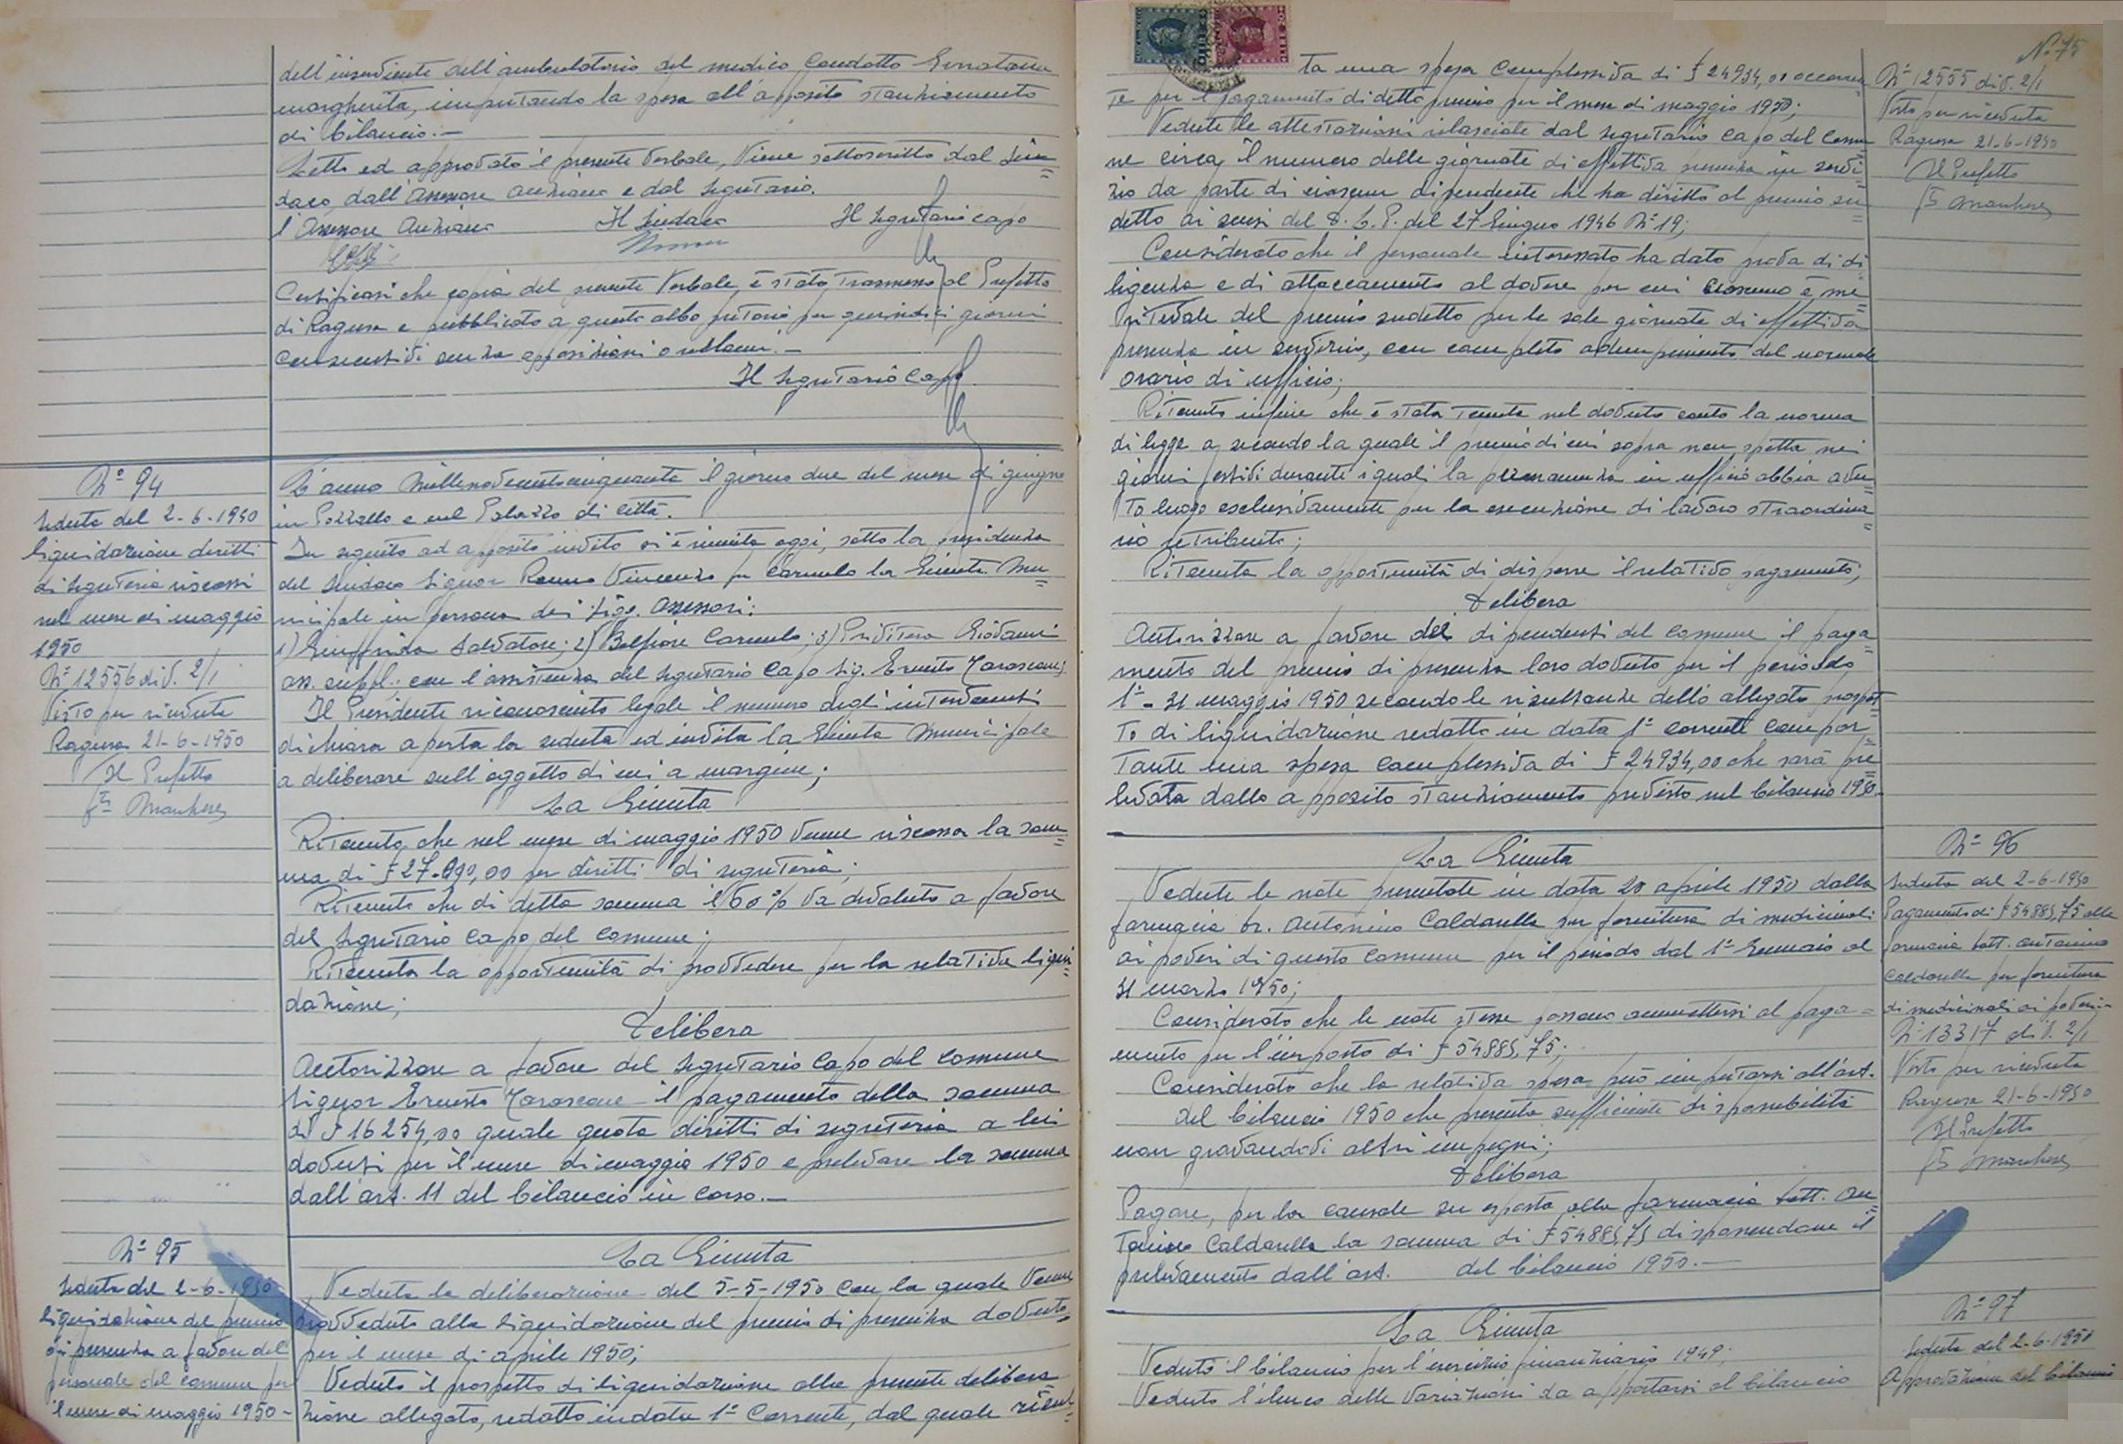 dell'inserviente dell'ambulatorio del medico condotto
margherita, imputando la spesa all'apposito stanziamento
di bilancio.—
Letto ed approvato il presente Verbale, viene sottoscritto dal Sin=
daco, dall'Assessore anziano e dal Segretario.
l'Assessore Anziano Il Sindaco Il Segretario capo
Certificasi che copia del presente Verbale, è stata trasmessa al Prefetto
di Ragusa e pubblicato a questo albo pretorio per quindici giorni
consecutivi senza opposizioni o reclami.—
Il Segretario Capo
N° 94
Seduta del 2-6-1950
liquidazione diritti
di segreteria riscossi
nel mese di maggio
1950
N° 12556 div. 2/1
Visto per ricevuta
Ragusa 21-6-1950
Il Prefetto
L'anno millenovecentocinquanta il giorno due del mese di giugno
in Pozzallo e nel Palazzo di città.
In seguito ad apposito invito si è riunita oggi, sotto la presidenza
del Sindaco Signor Vincenzo fu Carmelo la Giunta Mu=
nicipale in persona dei Sigg. Assessori:
1) Giuffrida Salvatore; 2) Belfiore Carmelo; 3) Giovanni
ass. suppl. con l'assistenza del Segretario Capo Sig. Ernesto
Il Presidente riconosciuto legale il numero degli intervenuti
dichiara aperta la seduta ed invita la Giunta Municipale
a deliberare sull'oggetto di cui a margine;
La Giunta
Ritenuto che nel mese di maggio 1950 venne riscossa la som=
ma di £ 27.090,00 per diritti di segreteria;
Ritenuto che di detta somma il 60% va devoluto a favore
del Segretario Capo del Comune;
Ritenuta la opportunità di provvedere per la relativa liqui=
dazione;
Delibera
Autorizzare a favore del Segretario Capo del Comune
Signor Ernesto il pagamento della somma
di £ 16254,00 quale quota diritti di segreteria a lui
dovuti per il mese di maggio 1950 e prelevare la somma
dall'art. 11 del bilancio in corso.—
N° 95
Seduta del 2-6-1950
Liquidazione del premio
di presenza a favore del
personale del comune per
il mese di maggio 1950—
La Giunta
Veduta la deliberazione del 5-5-1950 con la quale venne
provveduto alla liquidazione del premio di presenza dovuto
per il mese di aprile 1950;
Veduto il prospetto di liquidazione alla presente delibera
zione allegato, redatto in data 1° Corrente, dal quale risul=
N° 75
ta una spesa complessiva di £ 24934,00 occorren
te per il pagamento di detto premio per il mese di maggio 1950;
Vedute le attestazioni rilasciate dal segretario capo del Comu
ne circa il numero delle giornate di effettiva presenza in servi=
zio da parte di ciascun dipendente che ha diritto al premio su=
detto ai sensi del D.L.P. del 27 Giugno 1946 N° 19;
Considerato che il personale interessato ha dato prova di di=
ligenza e di attaccamento al dovere per cui ciascuno è me=
ritevole del premio sudetto per le sole giornate di effettiva
presenza in servizio, con completo adempimento del normale
orario di ufficio;
Ritenuto infine che è stata tenuta nel dovuto conto la norma
di legge a secondo la quale il premio di cui sopra non spetta nei
giorni festivi durante i quali la permanenza in ufficio abbia avu=
to luogo esclusivamente per la esecuzione di lavoro straordina=
rio retribuito;
Ritenuta la opportunità di disporre il relativo pagamento;
Delibera
Autorizzare a favore dei dipendenti del Comune il paga=
mento del premio di presenza loro dovuto per il periodo
1° - 31 maggio 1950 secondo le risultanze dello allegato prospet=
to di liquidazione redatto in data 1° corrente compor=
tante una spesa complessiva di £ 24934,00 che sarà pre=
levata dallo apposito stanziamento previsto nel bilancio 1950.
N° 12555 div. 2/1
Visto per ricevuta
Ragusa 21-6-1950
Il Prefetto
La Giunta
Vedute le note presentate in data 20 aprile 1950 dalla
farmacia Dr. Antonino Caldarella per fornitura di medicinali
ai poveri di questo Comune per il periodo dal 1° Gennaio al
31 marzo 1950;
Considerato che le note stesse possono ammettersi al paga=
mento per l'importo di £ 54885,75;
Considerato che la relativa spesa può imputarsi all'art.
del bilancio 1950 che presenta sufficiente disponibilità
non gravandovi altri impegni;
Delibera
Pagare, per la causale su esposta alla farmacia Dott. An=
tonino Caldarella la somma di £ 54885,75 disponendone il
prelevamento dall'art. del bilancio 1950.—
N° 96
Seduta del 2-6-1950
Pagamento di £ 54885,75 alla
farmacia Dott. Antonino
Caldarella per fornitura
di medicinali ai poveri—
N° 13317 div. 2/1
Visto per ricevuta
Ragusa 21-6-1950
Il Prefetto
La Giunta
Veduto il bilancio per l'esercizio finanziario 1949;
Veduto l'elenco delle variazioni da apportarsi al bilancio
N° 97
Seduta del 2-6-1950
Approvazione del bilancio